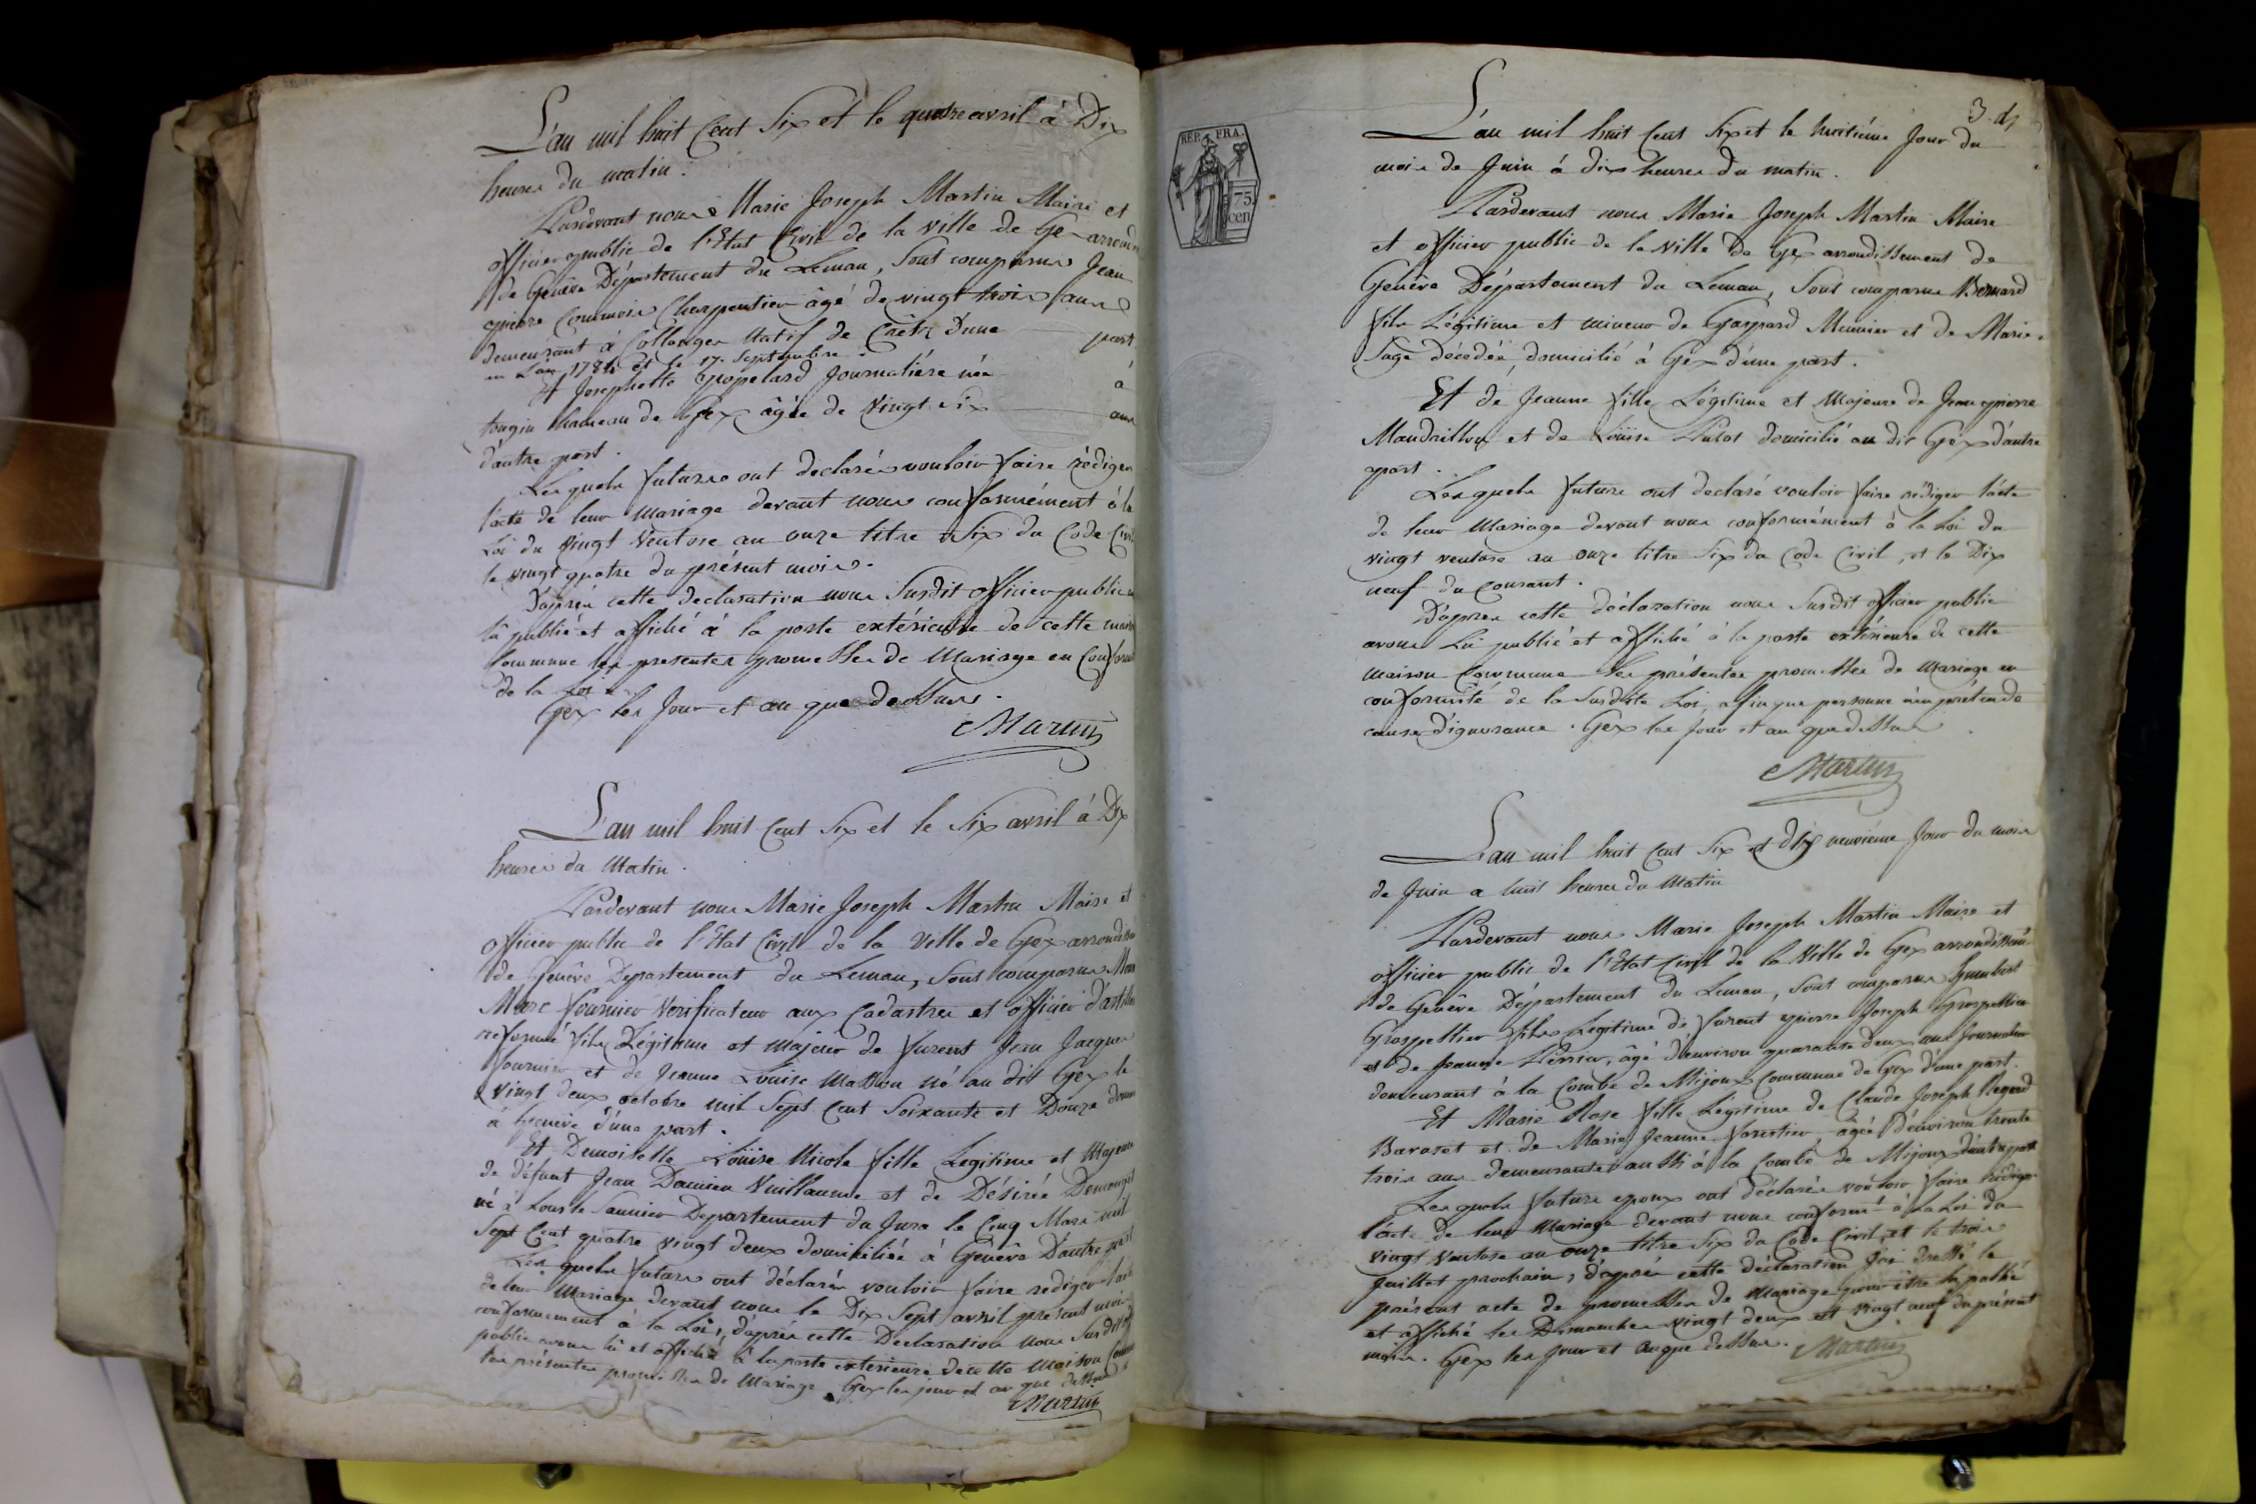 L'an mil huit Cent Six et le quatre avril à Dix
heures du matin.
Pardevant nous Marie Joseph Martin Maire et
officier public de l'Etat Civil de la ville de Gex arrond
de Genêve Département du Leman, sont comparus Jean
pierre Charpentier âgé de vingt trois ans
demeurant à Collonges Natif de d'une part
en L'an 1784 et le 17. Septembre
et Josephette popelard Journalière née à
tougin hameau de Gex âgée de Vingt Six ans
d'autre part.
Lesquels futurs ont declarés vouloir faire rédiger
l'acte de leur Mariage devant nous conformément à la
Loi du Vingt Ventose an onze titre Six du Code Civil
le Vingt quatre du présent mois.
D'après cette declaration nous Susdit officier public
lû publié et affiché à la porte extérieure de cette maison
Commune les presentes promesses de Mariage en Conformité
de la Loi
Gex les Jour et an que dessus.
Martin
L'an mil huit Cent Six et le Six avril à Dix
heures du Matin.
Pardevant nous Marie Joseph Martin Maire et
officier public de l'Etat Civil de la Ville de Gex arrondiss
de Genêve Departement du Leman, Sont comparus
Marc fournier Verificateur aux Cadastres et officier d'artill
reformé fils Légitime et majeur de furent Jean Jacques
fournier et de Jeanne Louise Masson né au dit Gex le
Vingt deux octobre mil Sept Cent Soixante et Douze
à Genêve d'une part.
Et Demoiselle Louise Nicole fille Legitime et Majeure
de défunt Jean Damien Vuillaume et de Désirée
né à Lons le Saunier Departement du Jura le Cinq Mars mil
Sept Cent quatre vingt deux domiciliée à Genêve D'autre part
Lesquels futurs ont déclarés vouloir faire rediger l'acte
de leur Mariage devant nous le Dix Sept avril présent mois
conformement à la Loi, d'après cette Declaration nous Susdit
public avons lû et affiché à la porte exterieure de cette Maison
les présentes promesses de Mariage. Gex les jour et an que dessus
Martin
REP. FRA.
75
cen
L'an mil huit Cent Six et le huitième Jour du
mois de Juin à dix heures du matin.
Pardevant nous Marie Joseph Martin Maire
et officier public de la Ville de Gex arrondissement de
Genêve Département du Leman, Sont comparus Bernard
fils Légitime et mineur de Gaspard Meunier et de Marie
Sage décédée, domicilié à Gex d'une part.
Et de Jeanne fille Légitime et Majeure de Jean pierre
Mandrillon et de Louise domicilié au dit Gex d'autre
part.
Lesquels future ont declaré vouloir faire rédiger l'acte
de leur Mariage devant nous conformément à la Loi du
vingt ventose an onze titre Six du Code Civil, et le Dix
neuf du Courant.
D'après cette déclaration nous Susdit officier public
avons Lû publié et affiché à la porte extérieure de cette
Maison Commune les présentes promesses de Mariage en
conformité de la Susdite Loi, afin que personne n'en prétende
cause D'ignorance. Gex les Jour et an que dessus
Martin
L'an mil huit Cent Six et dix neuvième Jour du mois
de Juin a huit heures du Matin
Pardevant nous Marie Joseph Martin Maire et
officier public de l'Etat Civil de la Ville de Gex arrondissemt
de Genêve Département du Leman, Sont comparus humbert
Grospellier fils Legitime de furent pierre Joseph Grospellier
et de Jeanne âgé d'environ quarante deux ans Journalier
demeurant à la Combe de Mijoux Commune de Gex d'une part.
Et Marie Rose fille Legitime de Claude Joseph Regard
et de Marie Jeanne forestier, agée D'environ trente
trois ans demeurante aussi à la Combe de Mijoux d'autre part
Lesquels future epoux ont déclarés vouloir faire rédiger
l'acte de leur Mariage devant nous conformé à La Loi du
Vingt Ventose an onze titre Six du Code Civil, et le trois
Juillet prochain, d'après cette déclaration j'ai dressé le
présent acte de promesses de Mariage pour être lû publié
et affiché les Dimanches vingt deux et vingt neuf du présent
mois. Gex les Jour et an que dessus. Martin